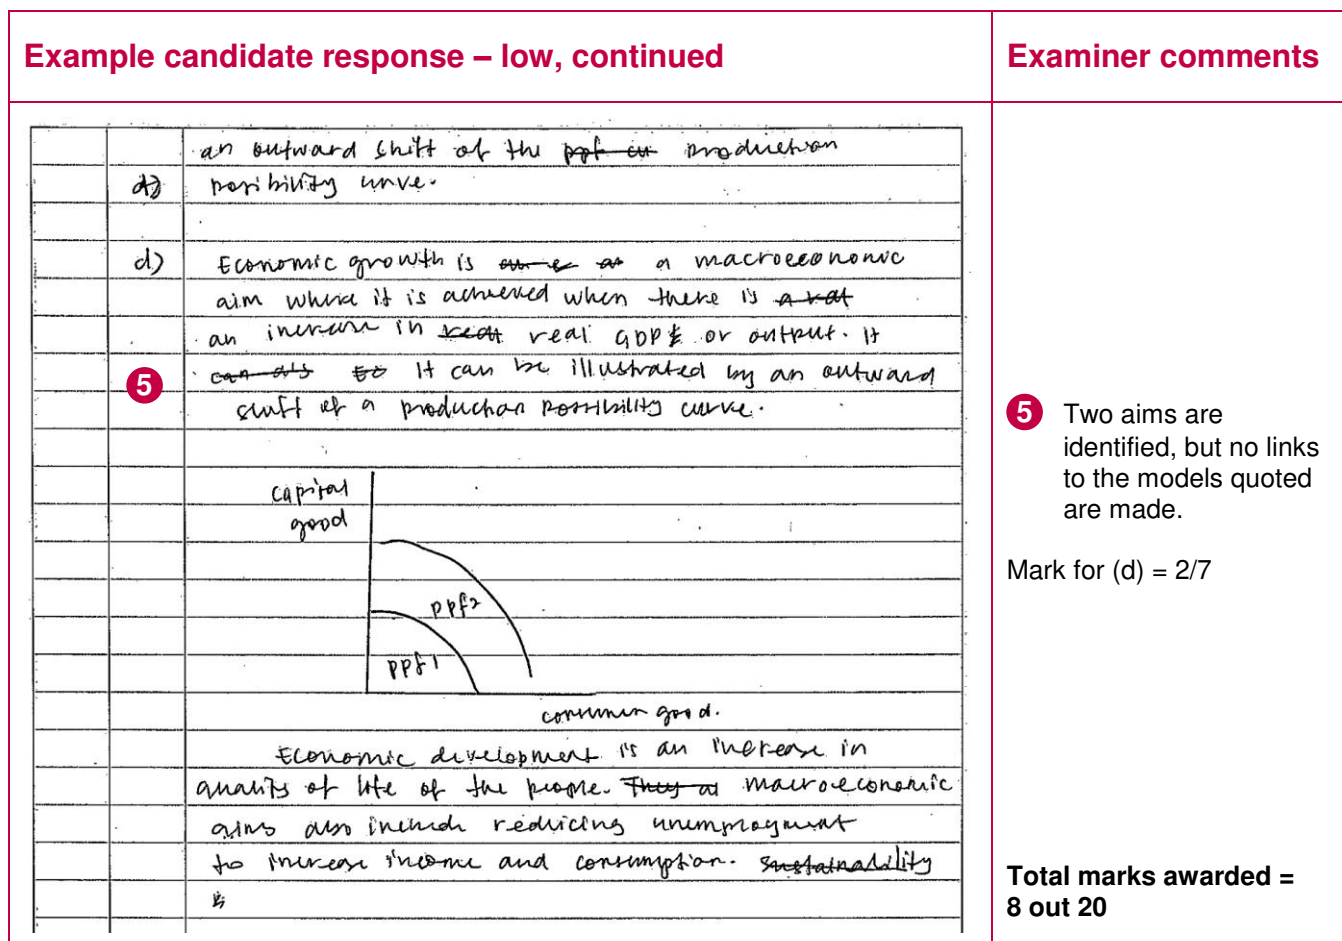 Example candidate response – low, continued
Examiner comments
an outward shift of the ppf cu production
d) posibility curve.
d) Economic growth is a macroeconomic
aim where it is achieved when there is a
an increase in real GDP or output. It
can als It can be illustrated by an outward
5
shift of a production possibility curve.
capital
good
ppf2
ppf1
consumer good.
Economic development is an increase in
quality of life of the people. They macroeconomic
aims also include reducing unemployment
to increase income and consumption. sustainability
is
5 Two aims are
identified, but no links
to the models quoted
are made.
Mark for (d) = 2/7
Total marks awarded =
8 out 20